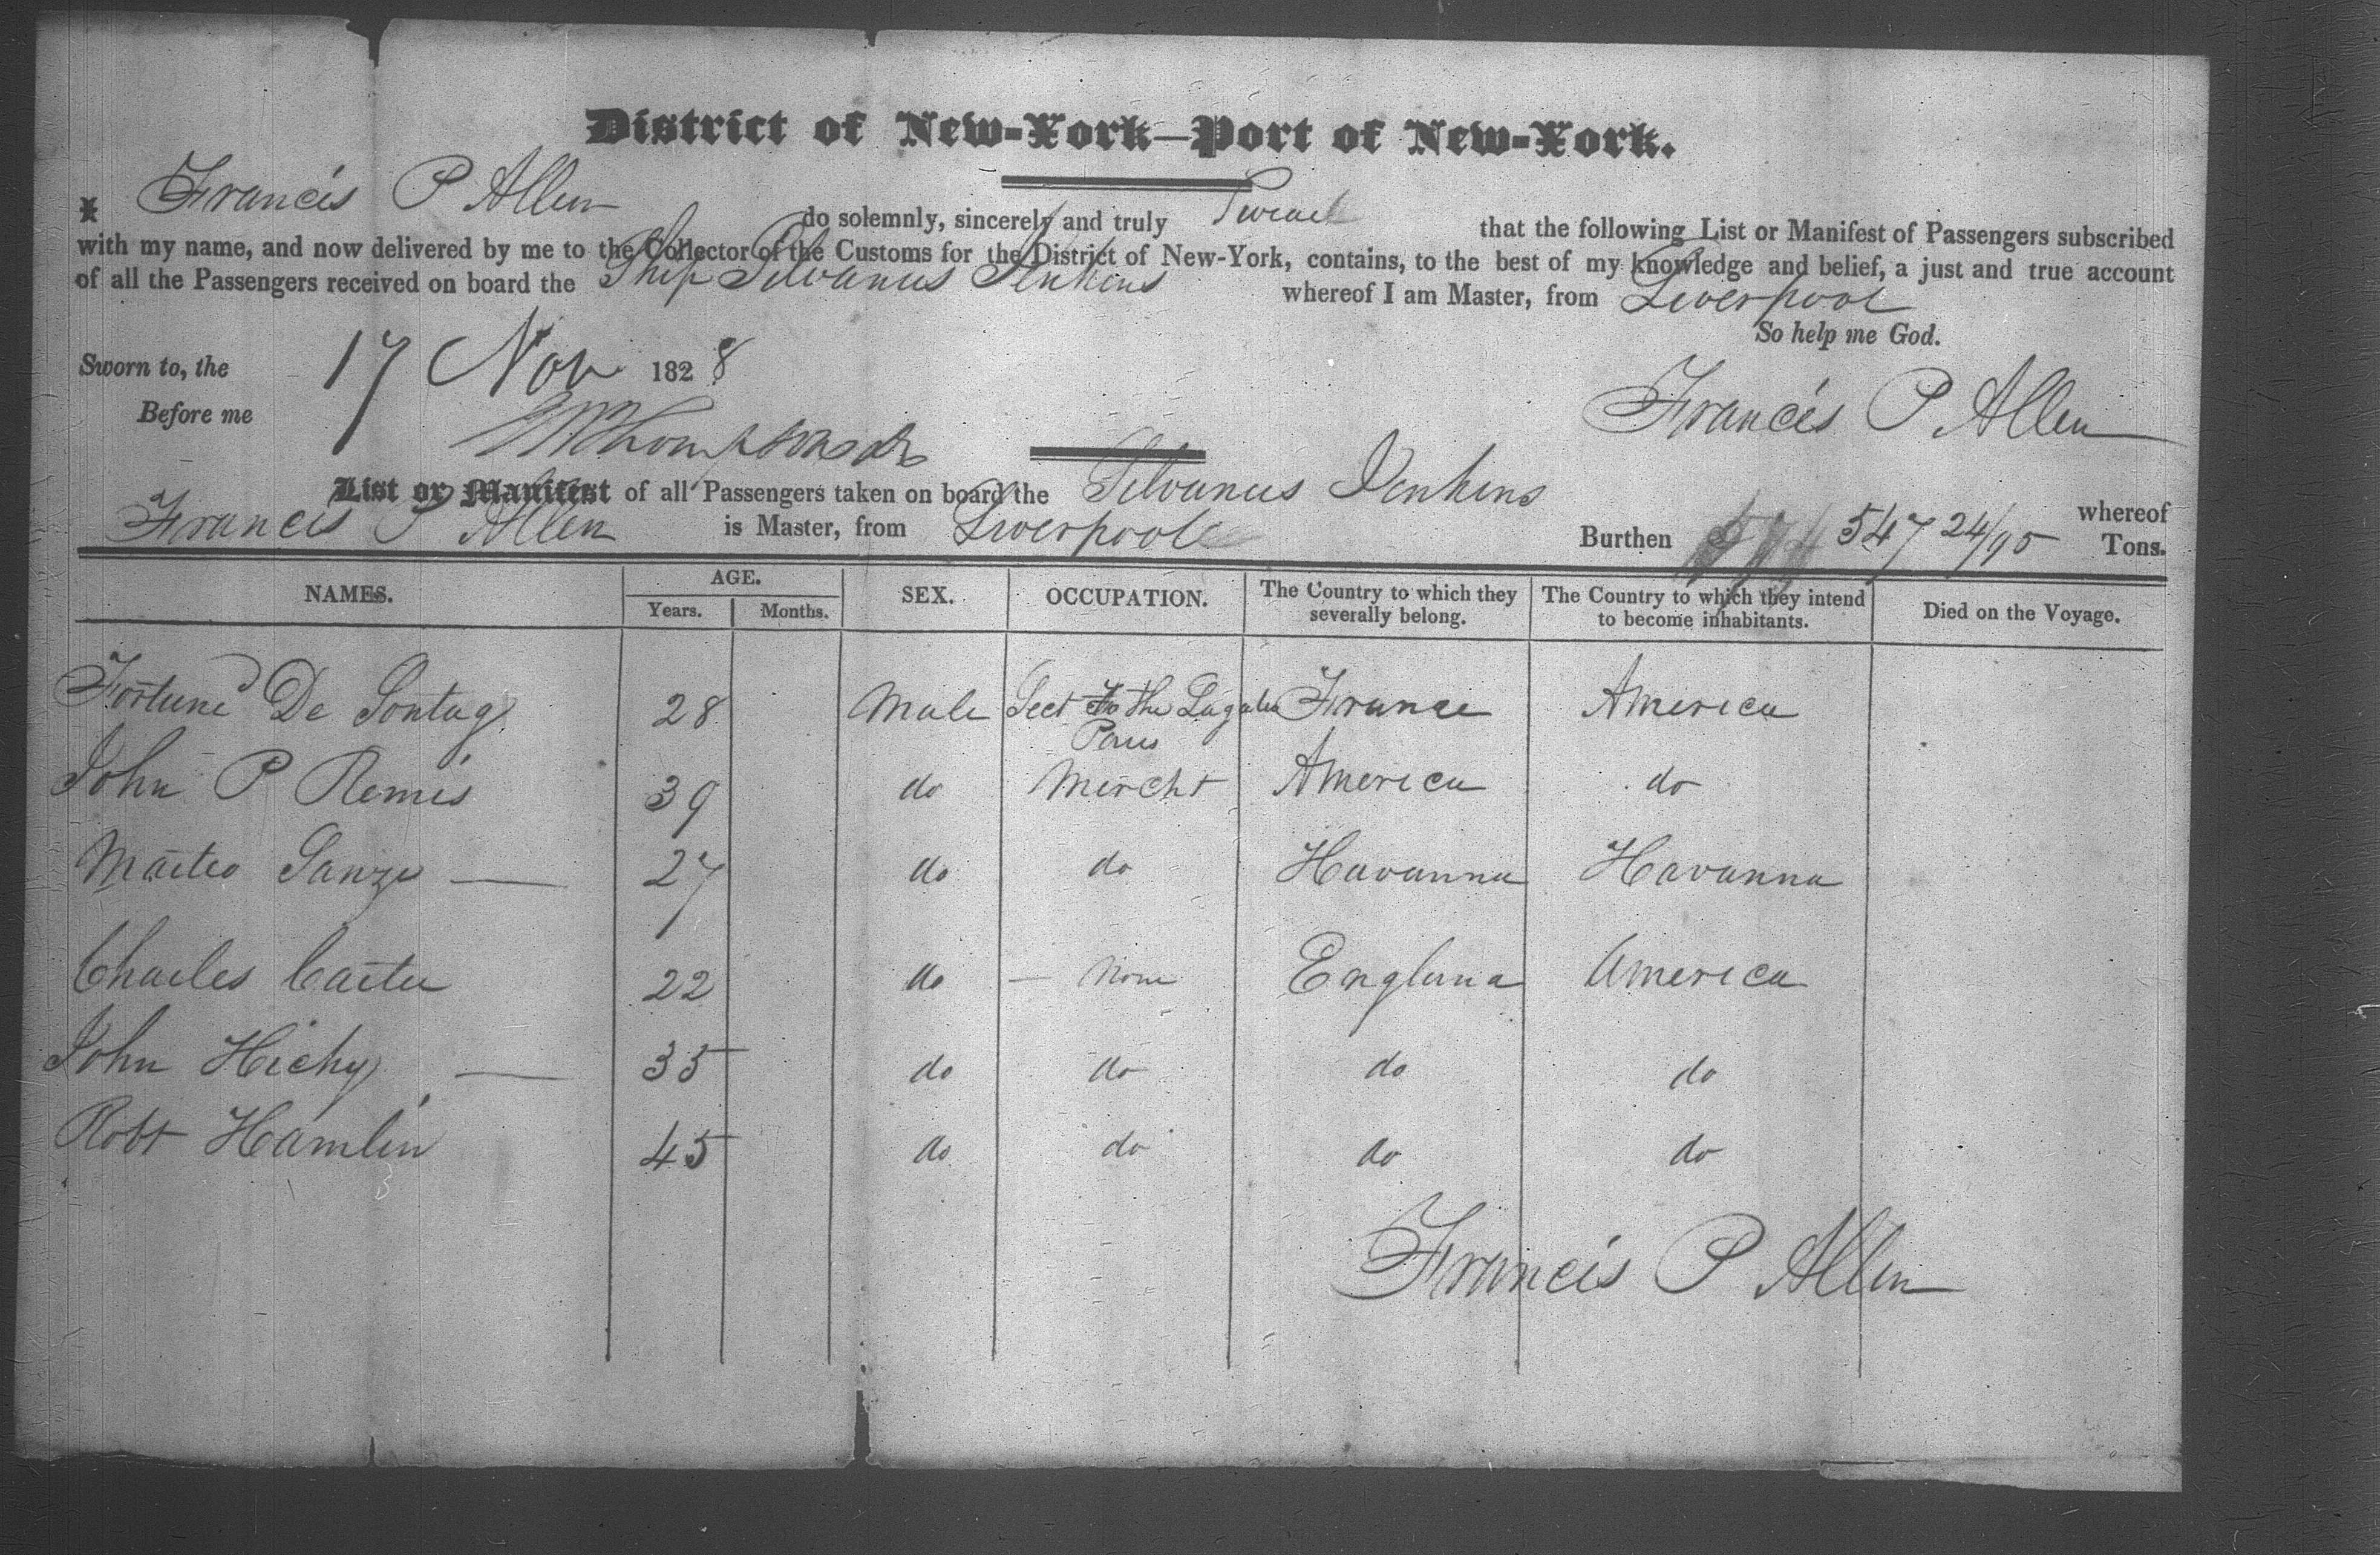 District of New-York—Port of New-York.
I Francis P Allen do solemnly, sincerely and truly Swear that the following List or Manifest of Passengers subscribed
with my name, and now delivered by me to the Collector of the Customs for the District of New-York, contains, to the best of my knowledge and belief, a just and true account
of all the Passengers received on board the Ship Silvanus Jenkins whereof I am Master, from Liverpool
So help me God.
Sworn to, the 17 Nov 1828
Before me Francis P Allen
List or Manifest of all Passengers taken on board the Silvanus Jenkins whereof
Francis P Allen is Master, from Liverpool Burthen 547 24/95 Tons.
NAMES. AGE. Years. Months. SEX. OCCUPATION. The Country to which they severally belong. The Country to which they intend to become inhabitants. Died on the Voyage.
Fortuné De Sontag 28 Male Sect to the France America
John P Remis 39 do Mercht America do
Matteo 27 do do Havanna Havanna
Charles Carter 22 do — None England America
John Hichy — 35 do do do do
Robt Hamlin 45 do do do do
Francis P Allen